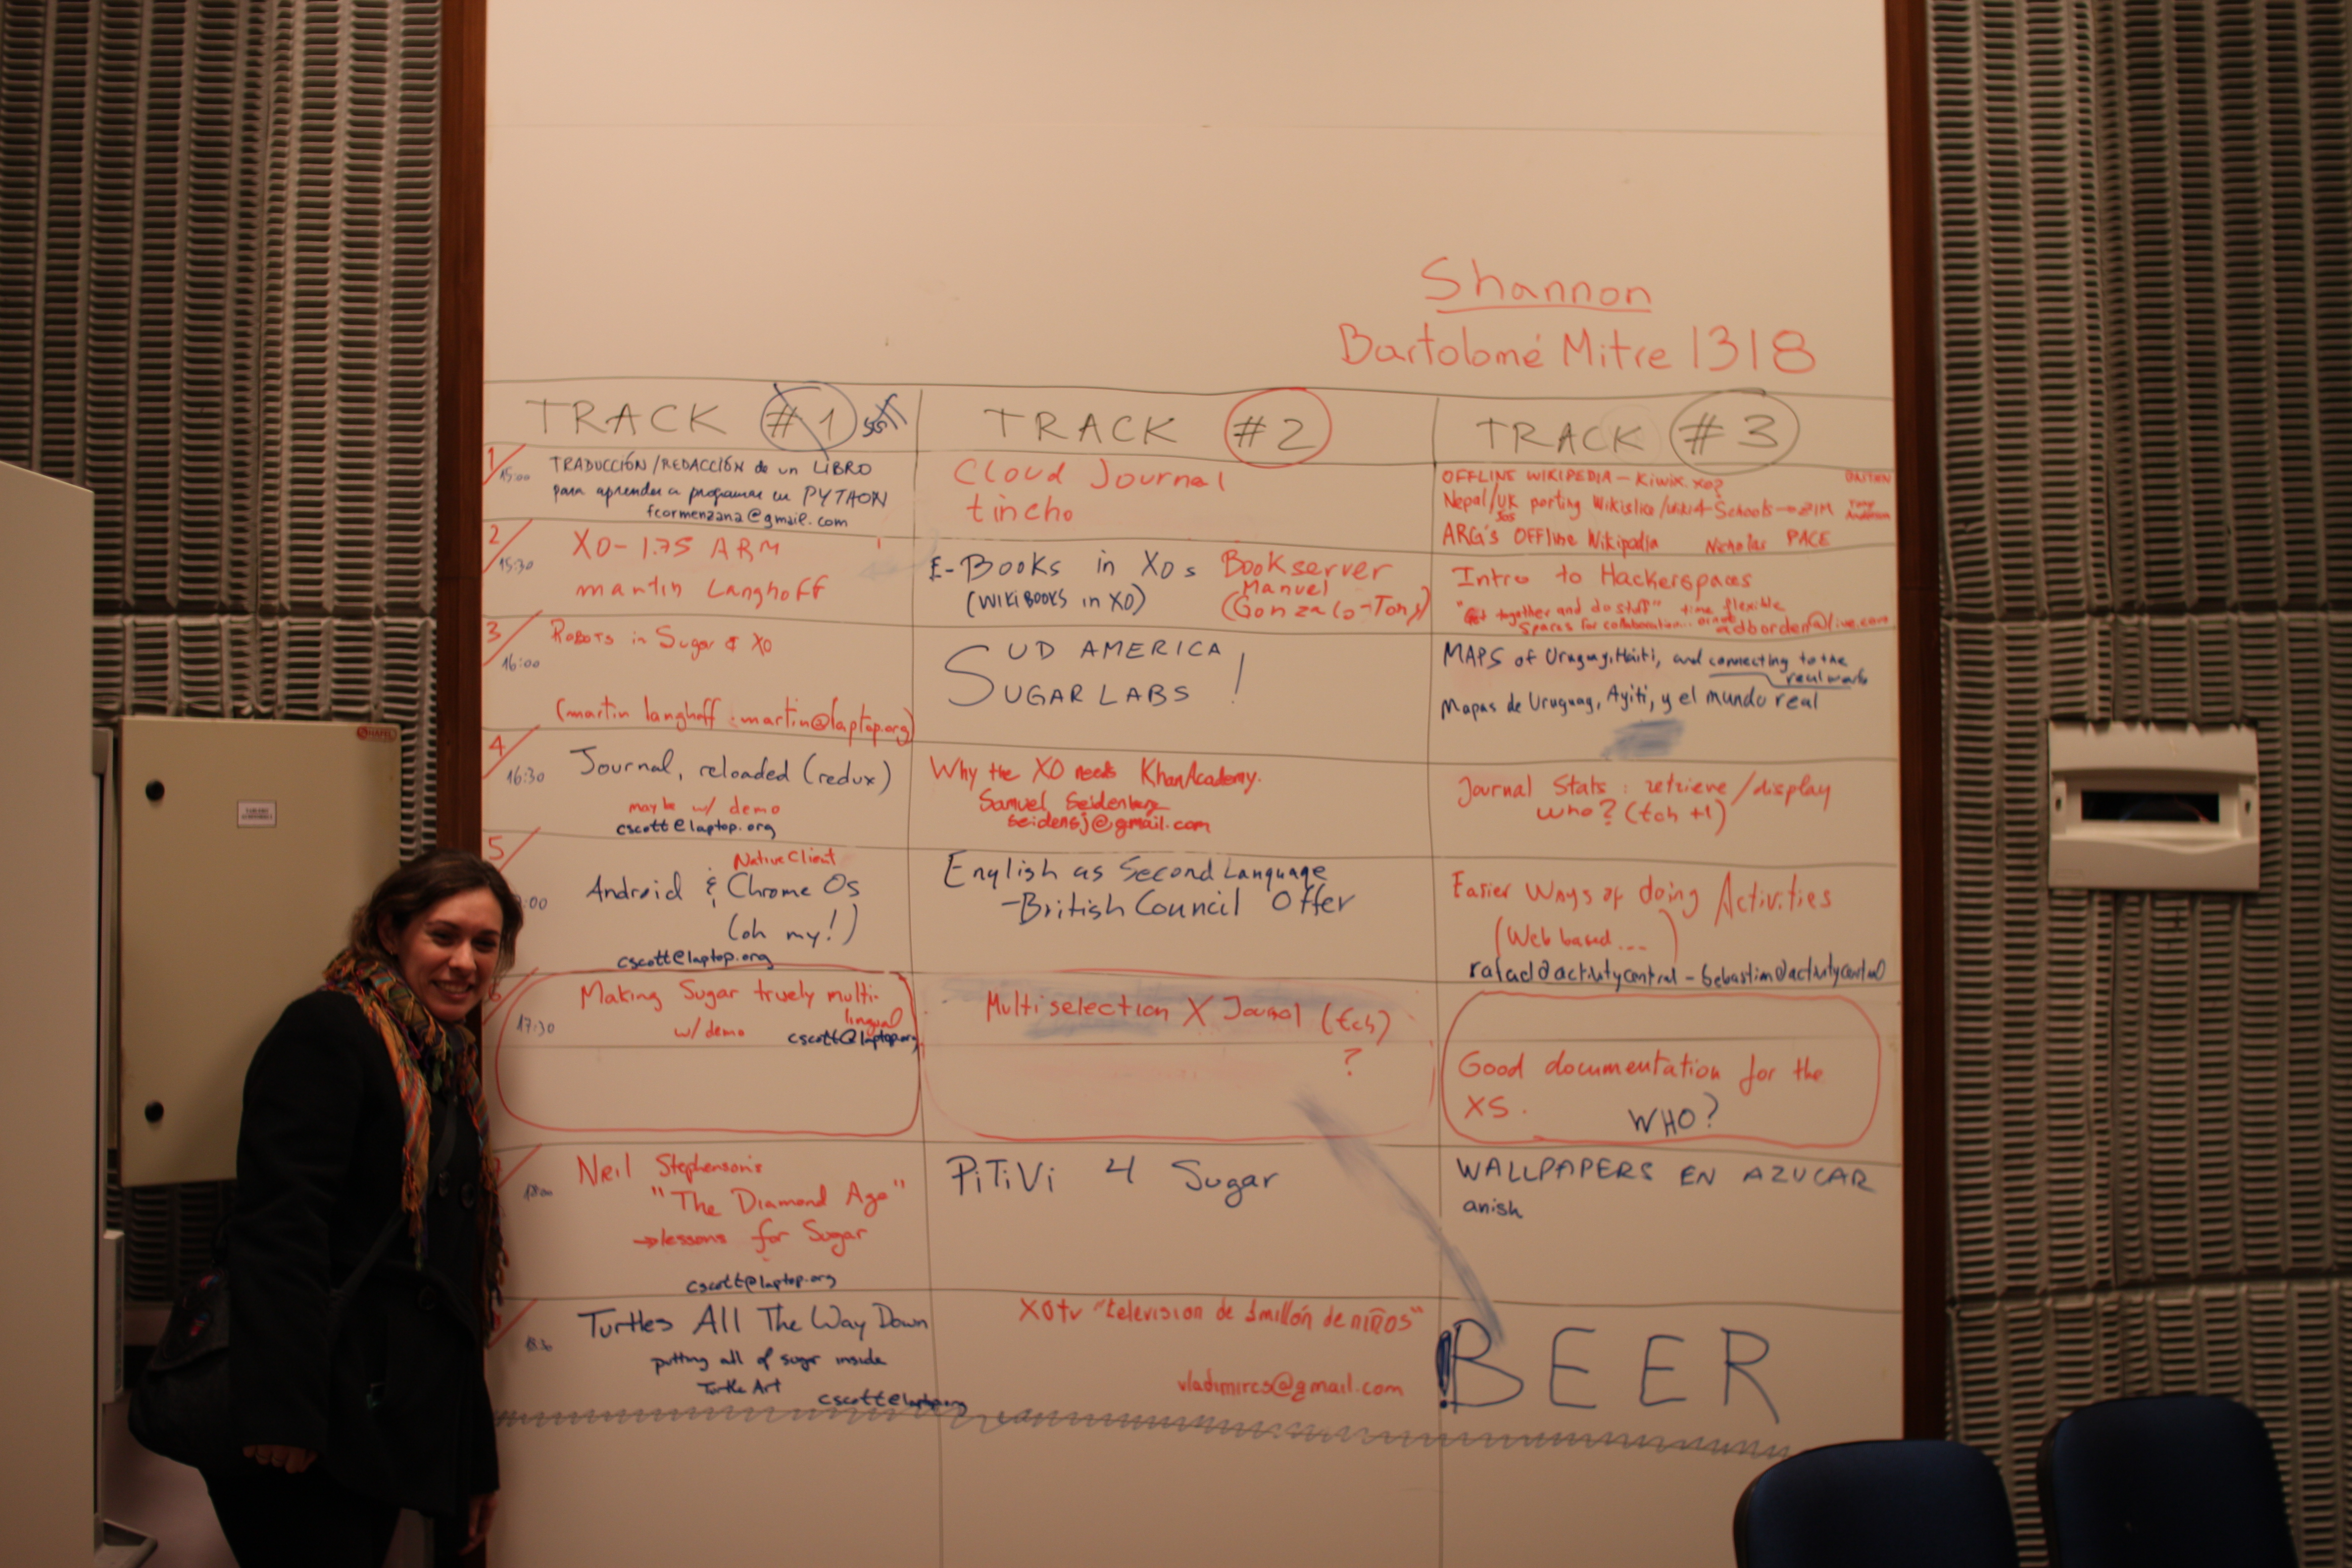 Shannon
Bartolomé Mitre 1318
TRACK #1
TRACK #2
TRACK #3
1
15:00
TRADUCCIÓN/REDACCIÓN de un LIBRO
para aprender a programar en PYTHON
fcormenzana@gmail.com
Cloud Journal
tincho
OFFLINE WIKIPEDIA – Kiwix.xo?
Nepal/UK porting Wikislice/wiki4Schools → ZIM
ARG's OFFline Wikipedia Nicholas PACE
2
15:30
XO-1.75 ARM
martin Langhoff
E-Books in XOs
(WIKIBOOKS in XO)
Bookserver
Manuel
(Gonzalo-Tony)
Intro to Hackerspaces
"Get together and do stuff" time flexible
Spaces for collaboration...
adborden@live.com
3
16:00
Robots in Sugar & XO
(martin langhoff : martin@laptop.org)
SUD AMERICA
SUGAR LABS !
MAPS of Uruguay, Haiti, and connecting to the
real world
Mapas de Uruguay, Ayiti, y el mundo real
4
16:30
Journal, reloaded (redux)
maybe w/ demo
cscott@laptop.org
Why the XO needs KhanAcademy.
Samuel Seidenberg
seidensj@gmail.com
Journal Stats : retrieve/display
who? (tch +1)
5
:00
Native Client
Android & Chrome Os
(oh my!)
cscott@laptop.org
English as Second Language
-British Council Offer
Easier Ways of doing Activities
(Web based ...)
rafael@activitycentral - Sebastian@activitycentral
6
17:30
Making Sugar truely multi-
lingual
w/ demo
cscott@laptop.org
Multiselection X Jounal (tch)
?
Good documentation for the
XS.
WHO?
18:00
Neil Stephenson's
"The Diamond Age"
→lessons for Sugar
cscott@laptop.org
PiTiVi 4 Sugar
WALLPAPERS EN AZUCAR
anish
18:30
Turtles All The Way Down
putting all of sugar inside
Turtle Art
cscott@laptop.org
XOtv "television de 1millón de niños"
vladimircs@gmail.com
¡BEER